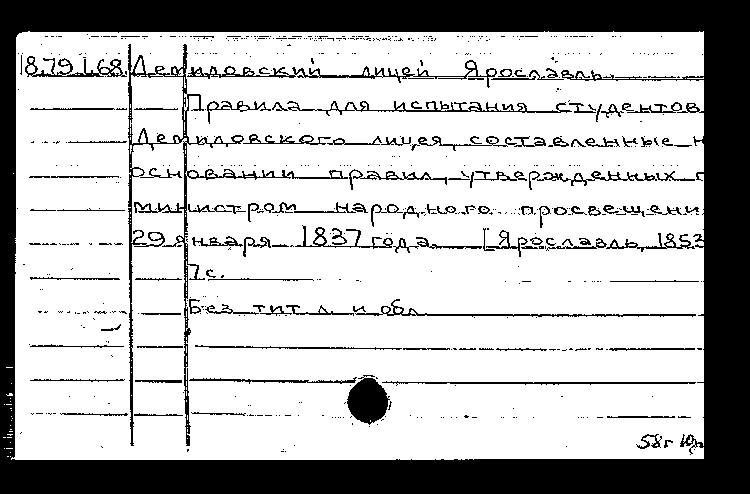 18.79.1.68 Демидовский лицей Ярославль.
Правила для испытания студентов
Демидовского лицея, составленные н
основании правил, утвержденных г
министром народного просвещени
29 января 1837 года. [Ярославль, 1853
7 с.
Без тит. л. и обл.
58г